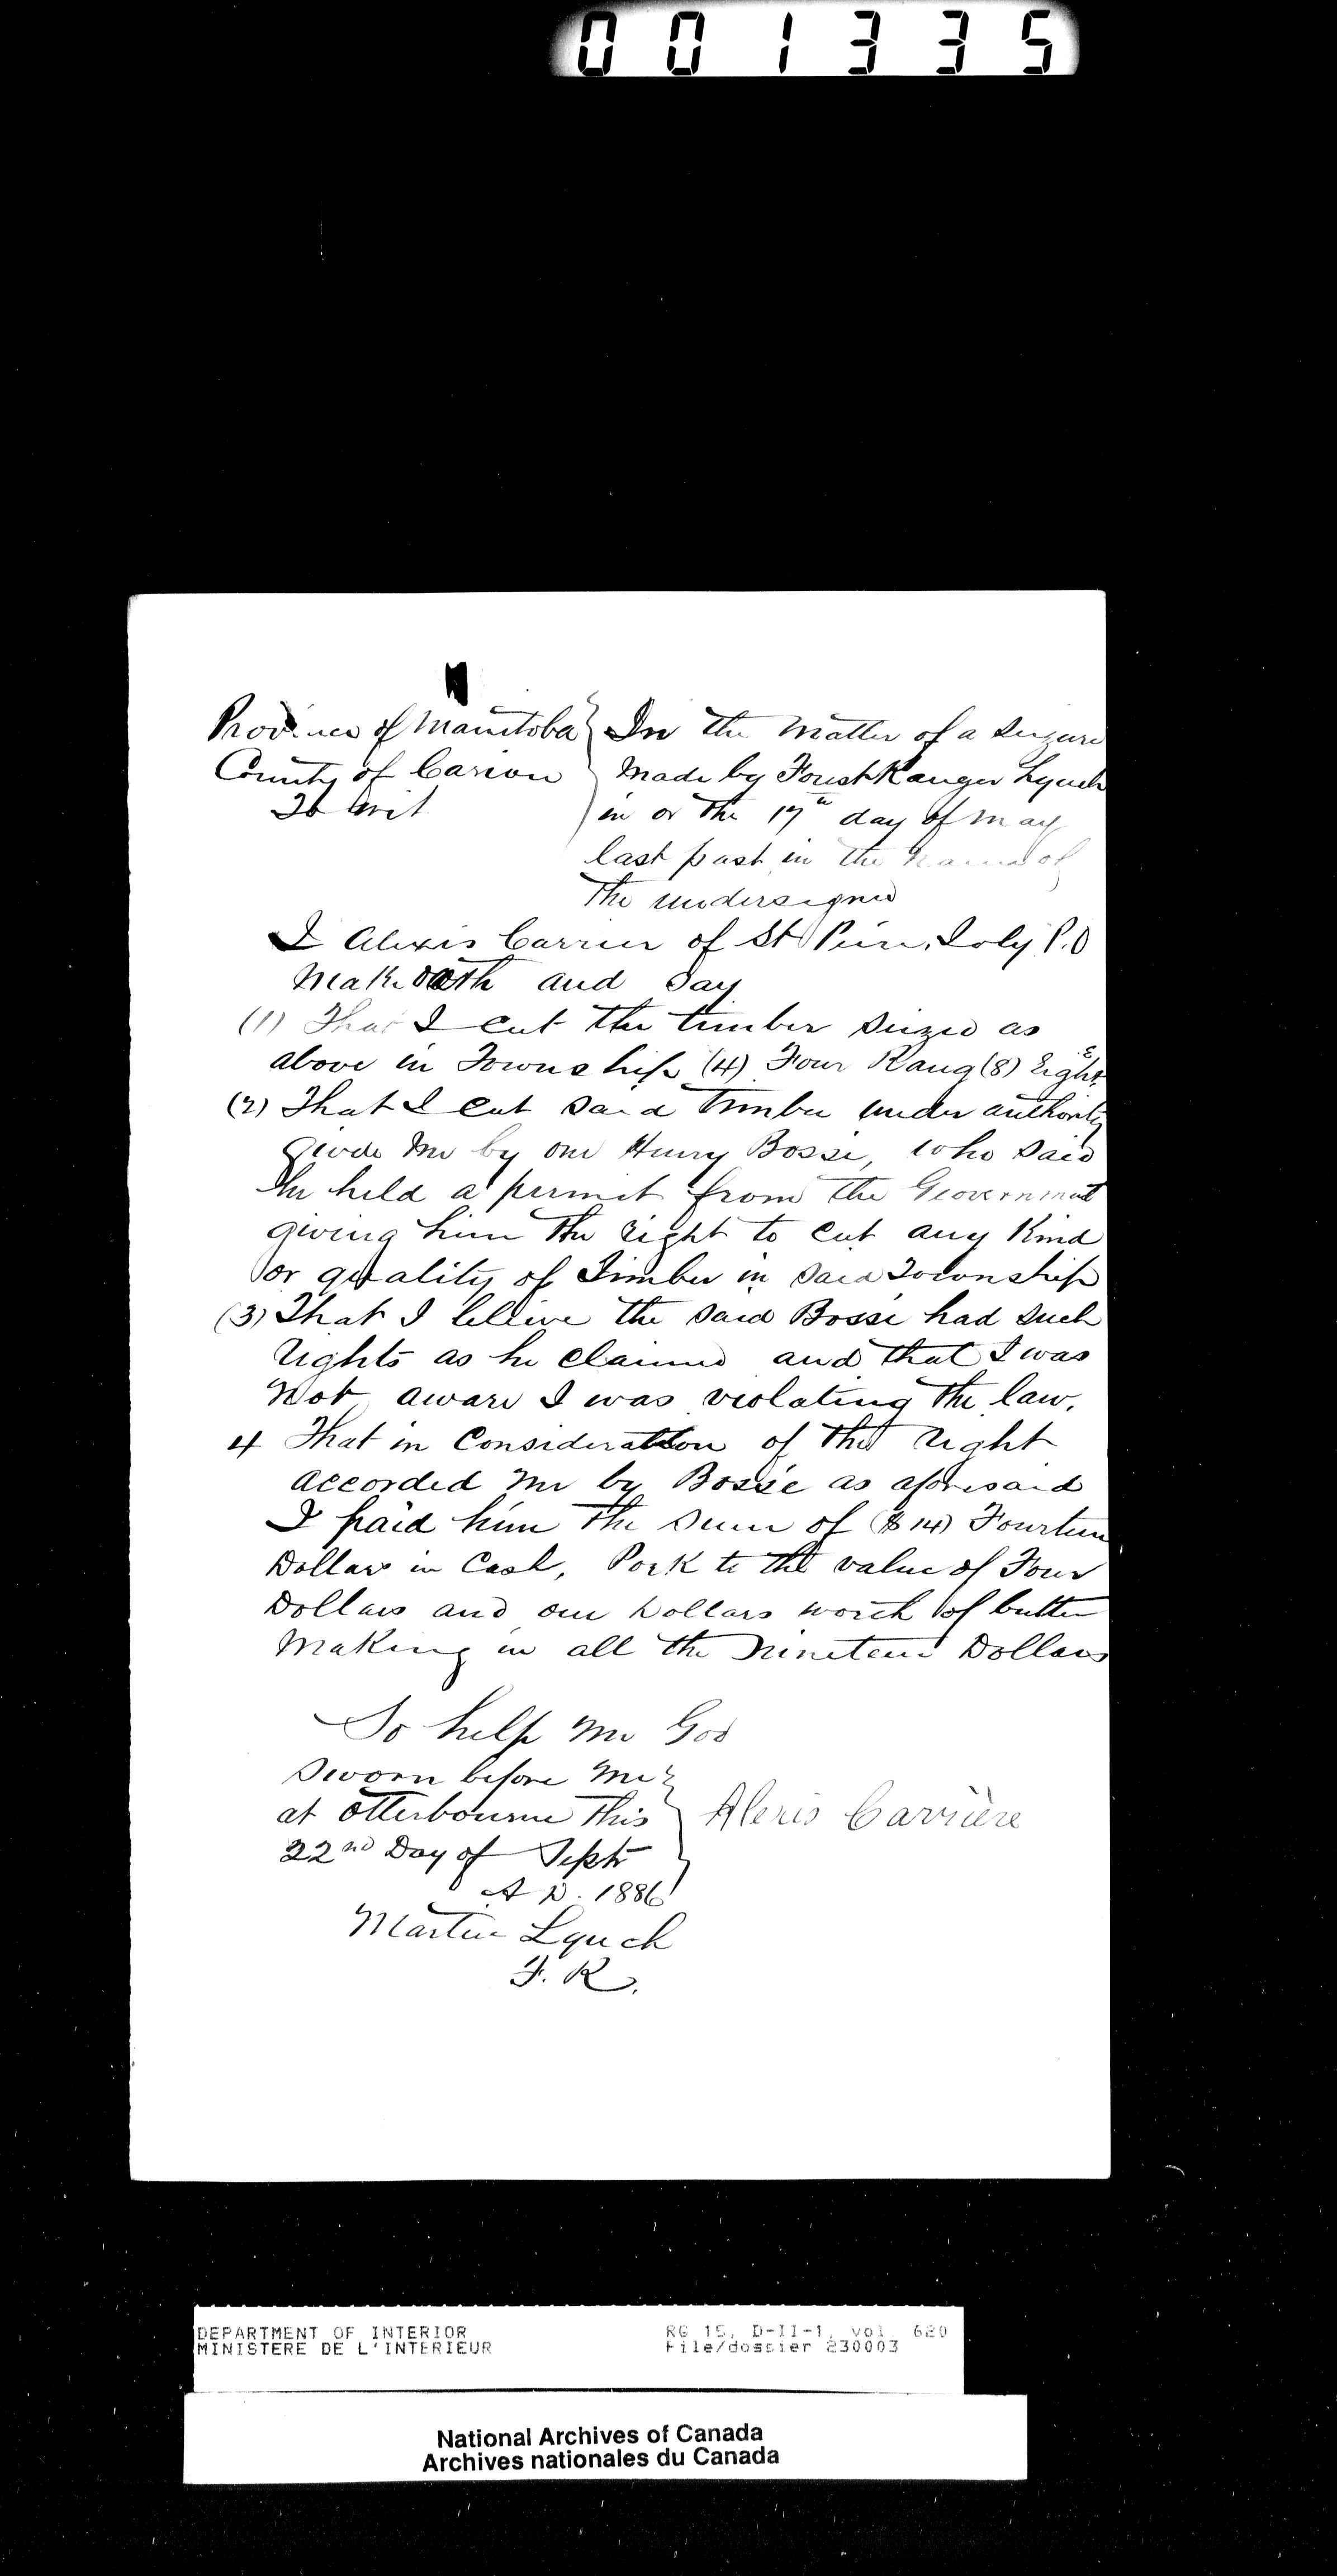 001335
Province of Manitoba } In the Matter of a Seizure
County of Carion } Made by Forest Ranger Lynch
To Wit } in or the 17th day of May
last past in the name of
The undersigned
I Alexis Carrier of St Pierre, Joly P.O
Make Oath and Say
(1) That I cut the timber seized as
above in Township (4) Four Rang (8) Eight
(2) That I cut said timber under authority
give me by one Henry Bosse, who said
he held a permit from the Government
giving him the right to cut any Kind
or quality of Timber in said Township
(3) That I believe the said Bosse had such
rights as he claimed and that I was
Not aware I was violating the law.
4 That in Consideration of the right
accorded me by Bosse as aforesaid
I paid him the sum of ($14) Fourteen
Dollars in Cash, Pork to the value of Four
Dollars and one Dollars worth of butter
Making in all the nineteen Dollars
So help me God
Sworn before Me }
at Otterbourne this } Alexis Carrière
22nd Day of Sept
A D. 1886
Martin Lynch
F. R.
DEPARTMENT OF INTERIOR RG 15, D-II-1, vol 620
MINISTERE DE L'INTERIEUR File/dossier 230003
National Archives of Canada
Archives nationales du Canada